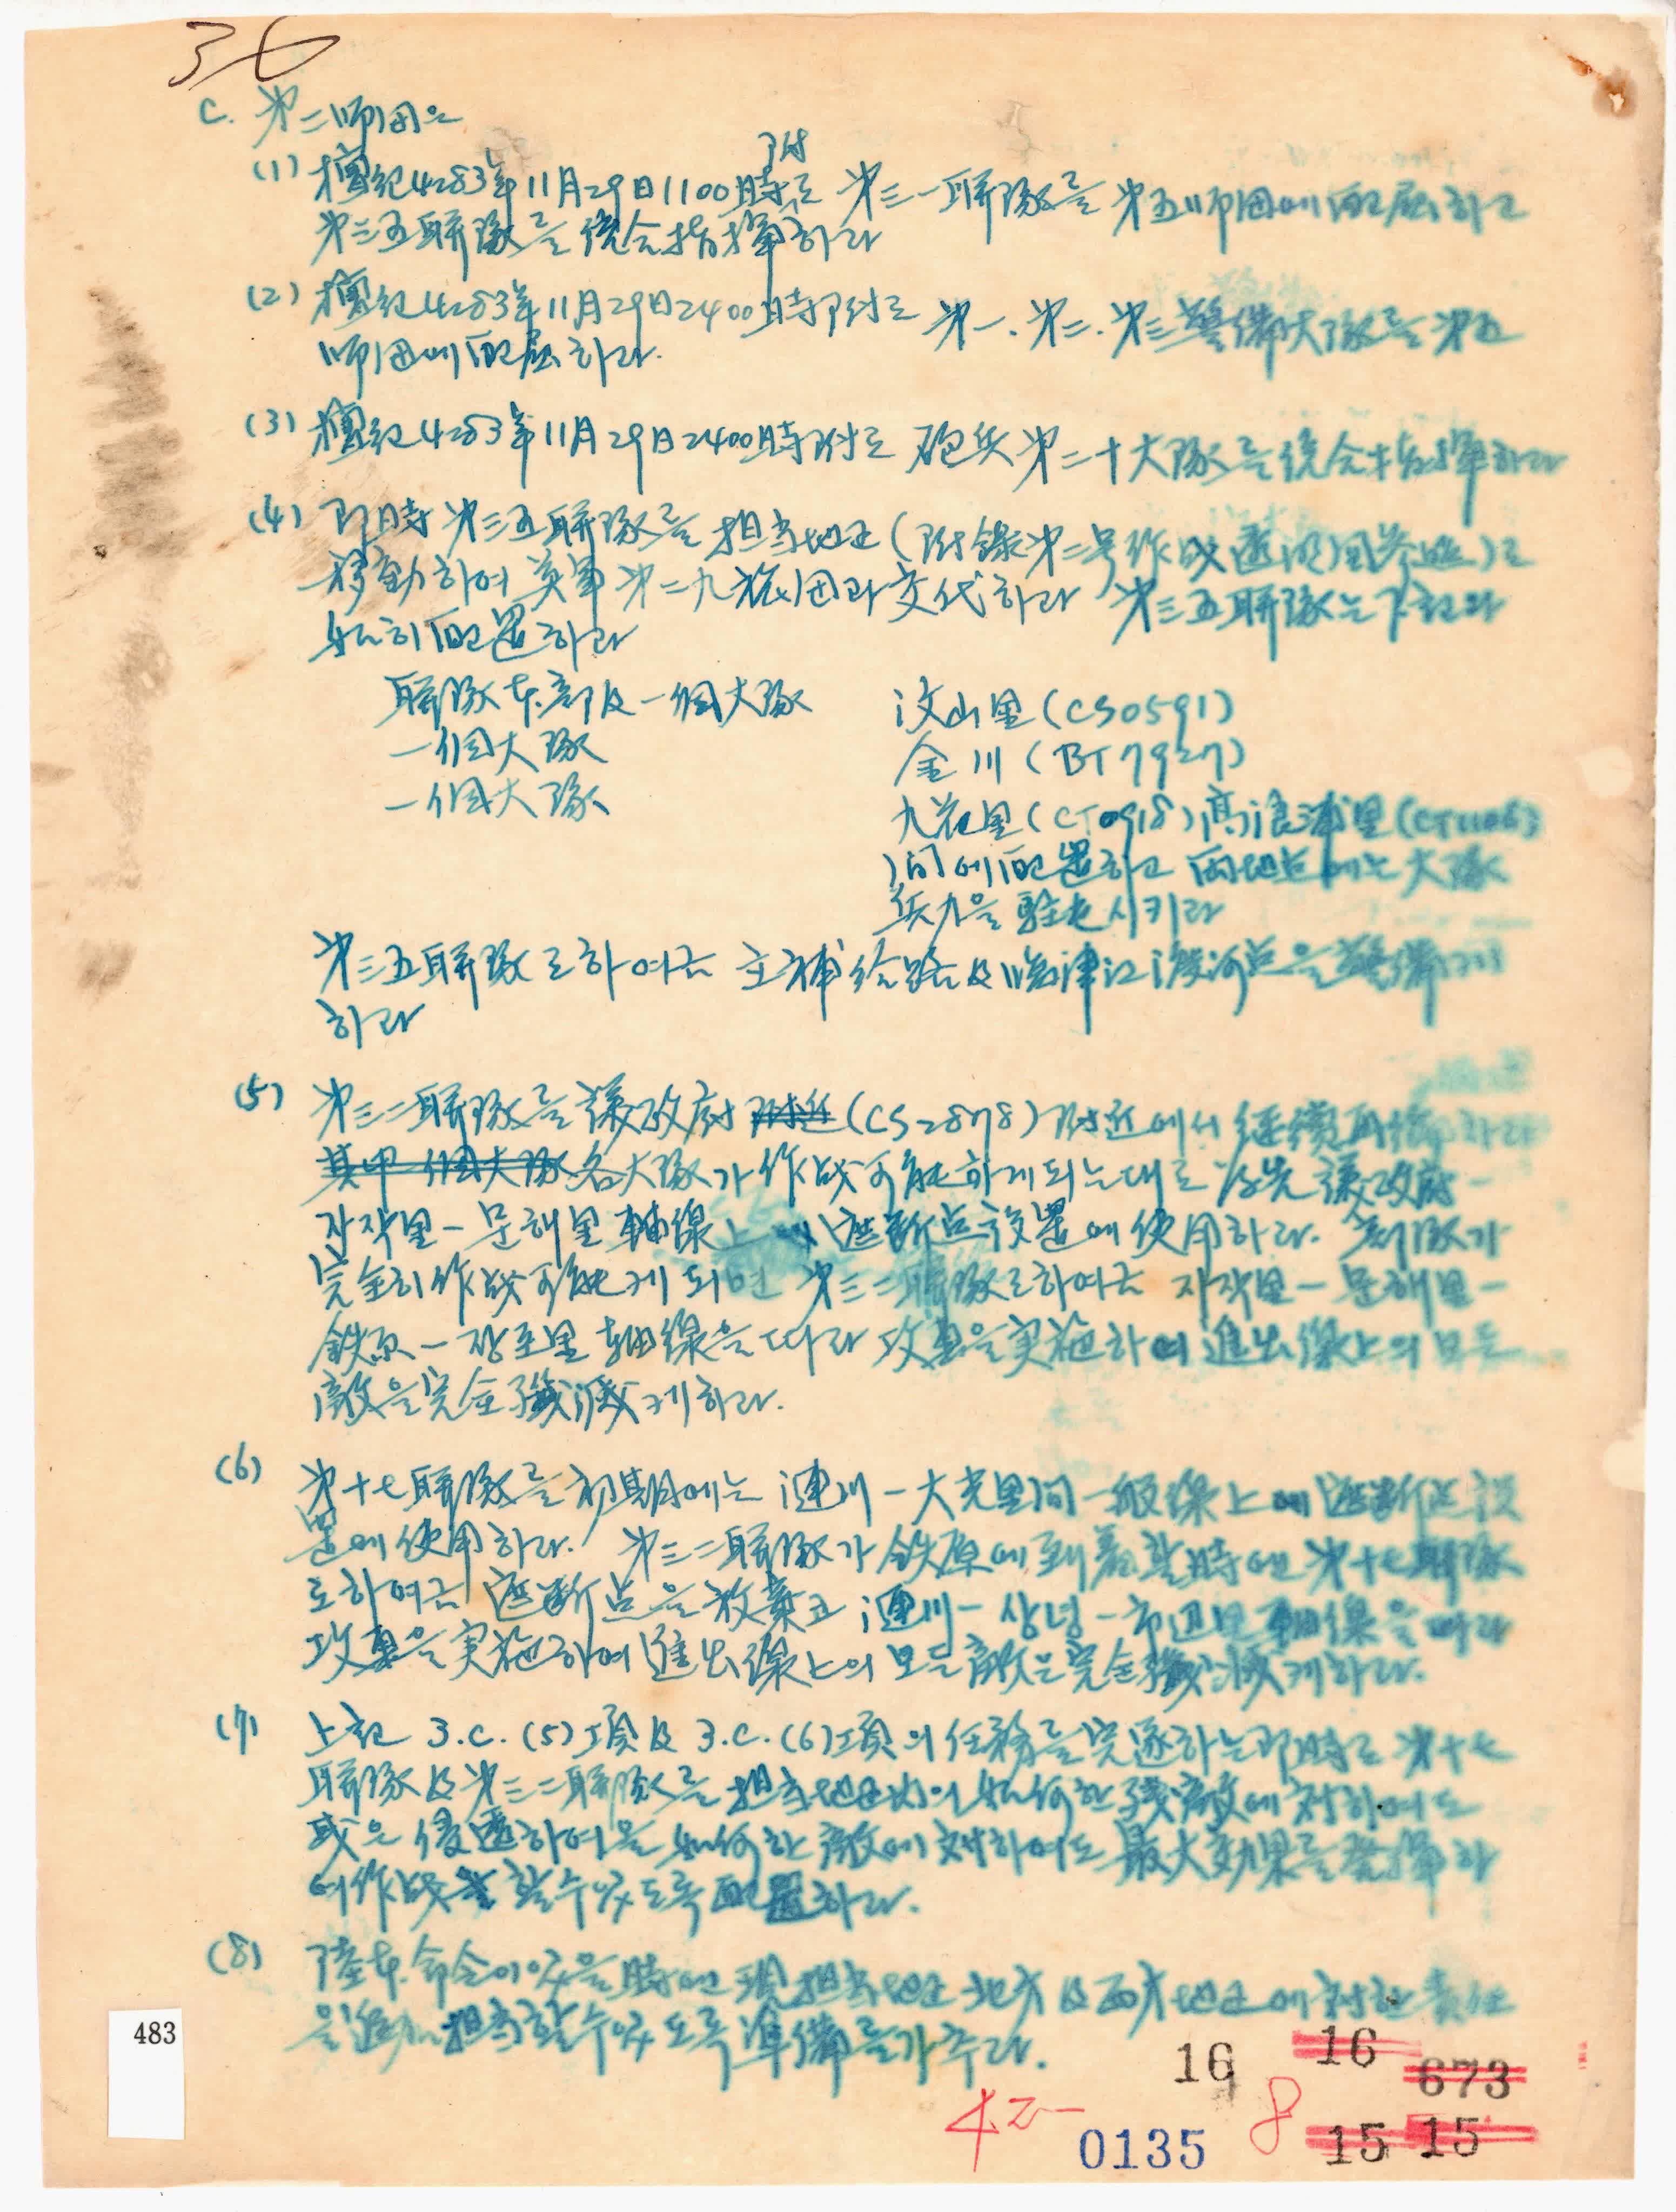 36
C. 第二師団은
(1) 檀紀4283年11月29日1100時附로 第三一聯隊를 第五師団에 配属하고
第三五聯隊를 統合指揮하라
(2) 檀紀4283年11月29日2400時附로 第一.第二.第三警備大隊를 第五
師団에 配属하라.
(3) 檀紀4283年11月29日2400時附로 砲兵第二十大隊를 統合指揮하라
(4) 即時 第三五聯隊를 担当地区(附録第二号作战透明図参照)로
移動하여 英軍 第二九旅団과 交代하라 第三五聯隊는 下記와
如히 配置하라
聯隊本部及一個大隊 汶山里(CS0591)
一個大隊 金川(BT7927)
一個大隊 九花里(CT0918)高浪浦里(CT1106)
間에 配置하고 両地点에는 大隊
兵力을 駐屯시키라
第三五聯隊로하여금 主補給路及臨津江渡河点을 警備케
하라
(5) 第三二聯隊를 議政府 附近(CS2878)附近에서 継續再編하라
其中 一個大隊 各大隊가 作战可能하게되는대로 于先 議政府-
자작里-문해里 軸線上에 遮断点設置에 使用하라. 部隊가
完全히 作战可能케 되면 第三二聯隊로하여금 자작里-문해里-
鉄原-장포里 軸線을 따라 攻撃을 実施하여 進出線上의 모든
敵을 完全殲滅케하라.
(6) 第十七聯隊를 初期에는 漣川-大光里間 一般線上에 遮断点設
置에 使用하라. 第三二聯隊가 鉄原에 到着할時엔 第十七聯隊
로하여금 遮断点을 放棄코 漣川-삭녕-市辺里 軸線을 따라
攻撃을 実施하여 進出線上의 모든 敵을 完全殲滅케하라.
(7) 上記 3.C.(5)項及 3.C.(6)項의 任務를 完遂하는即時로 第十七
聯隊及第三二聯隊를 担当地区内의 如何한 残敵에 対하여도
或은 侵 하여 如何한 敵에 対하여도 最大効果를 発揮하
여 作战 할수있도록 配置하라.
(8) 陸本命令이 있을時엔 現担当地区 北方及西方地区에 対한 責任
을 担当할수있도록 準備를 가추라.
483
16
16
673
42
0135
8
15 15